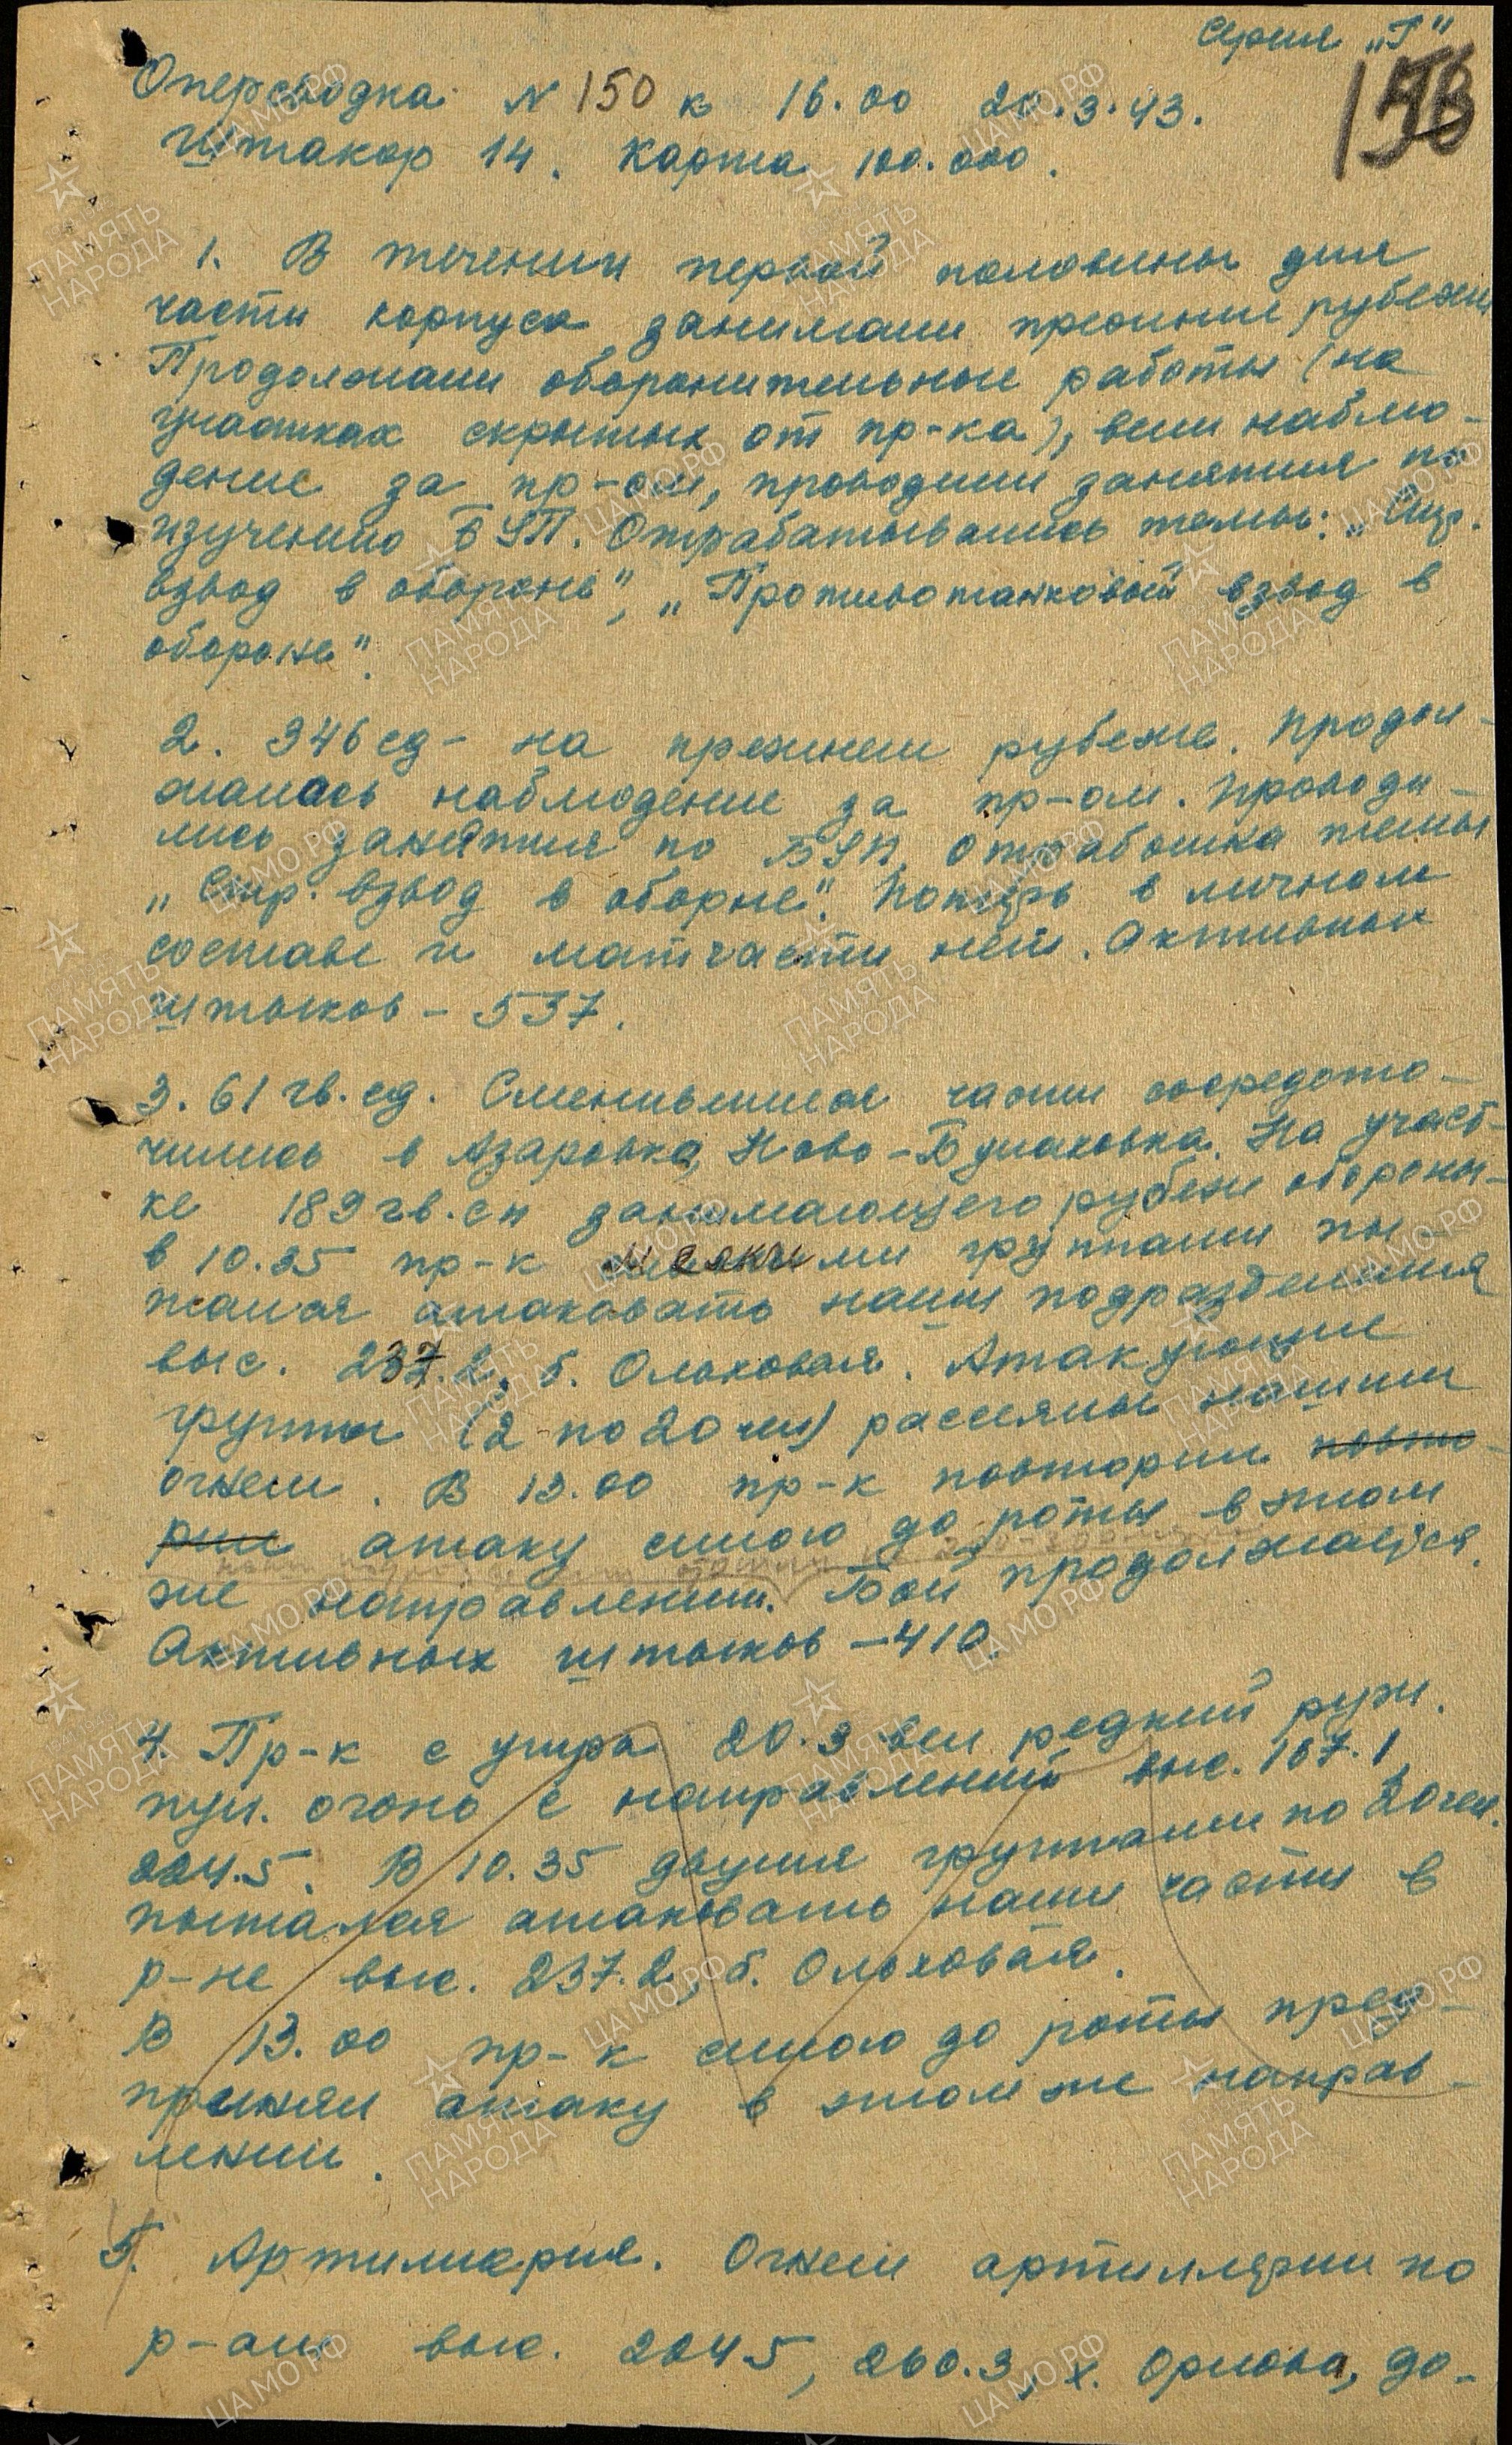 Серия „Г"
158
Оперсводка N 150 к 16.00 20.3.43.
Штакор 14. Карта 100.000.
1. В течении первой половины дня
части корпуса занимали прежние рубежи
Продолжали оборонительные работы (на
участках скрытых от пр-ка), вели наблю-
дение за пр-ом, проводили занятия по
изучению БУП. Отрабатывались темы: „Стр.
взвод в обороне", „Противотанковый взвод в
обороне".
2. 346 сд - на прежнем рубеже. Продол-
жалось наблюдение за пр-ом. Проводи-
лись занятия по БУП, отработка темы
„Стр. взвод в оборне". Потерь в личном
составе и матчасти нет. Активных
штыков - 537.
3. 61 гв. сд. Сменившиеся части сосредото-
чились в Азаровка, Ново-Булаховка. На участ-
ке 189 гв. сп занимающего рубеж обороны-
в 10.35 пр-к мелкими группами пы-
тался атаковать наши подразделения
выс. 237.2, б. Ольховая. Атакующие
группы (2 по 20 чел) рассеяны нашим
огнем. В 13.00 пр-к повторил повто-
рил атаку силою до роты в том
же направлении. Бой продолжается.
Активных штыков - 410.
4. Пр-к с утра 20.3 вел редкий руж.
пул. огонь с направлений выс. 167.1,
204.5. В 10.35 двумя группами по 20 чел.
пытался атаковать наши части в
р-не выс. 237.2, б. Ольховая.
В 13.00 пр-к силою до роты пред-
принял атаку в этом же направ-
лении.
5. Артиллерия. Огнем артиллерии по
р-ам выс. 204.5, 260.3, х. Орлова, до-
ПАМЯТЬ НАРОДА
ЦАМО РФ